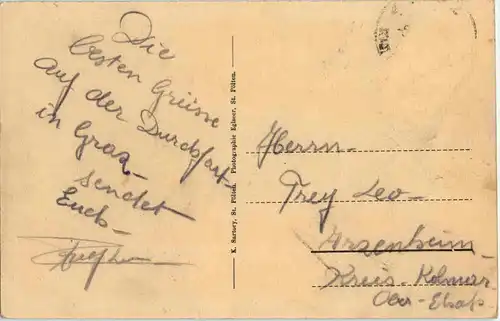 Die
besten Grüsse
auf der Durchfahrt
in Graz
sendet
Euch
K. Sartory, St. Pölten. Photographie Eglseer, St. Pölten.
Herrn
Frey Leo
Arzenheim
Kreis Kolmar
Ober-Elsaß